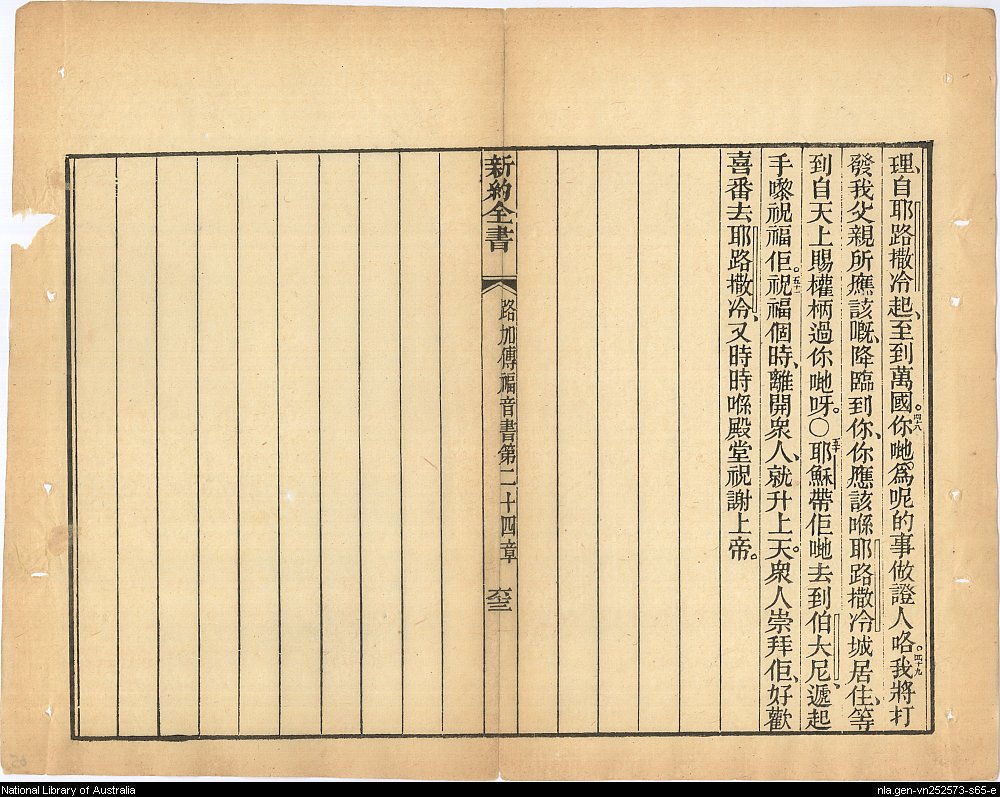 理、自耶路撒冷起、至到萬國。四八你哋爲呢的事做證人咯。四十九我將打
發我父親所應該嘅、降臨到你、你應該喺耶路撒冷城居住、等
到自天上賜權柄過你哋呀。〇五十耶穌帶佢哋去到伯大尼、遞起
手嚟祝福佢。五一祝福個時、離開衆人、就升上天。衆人崇拜佢、好歡
喜番去耶路撒冷、又時時喺殿堂祝謝上帝。
新約全書
路加傳福音書第二十四章
六十三
National Library of Australia
nla.gen-vn252573-s65-e